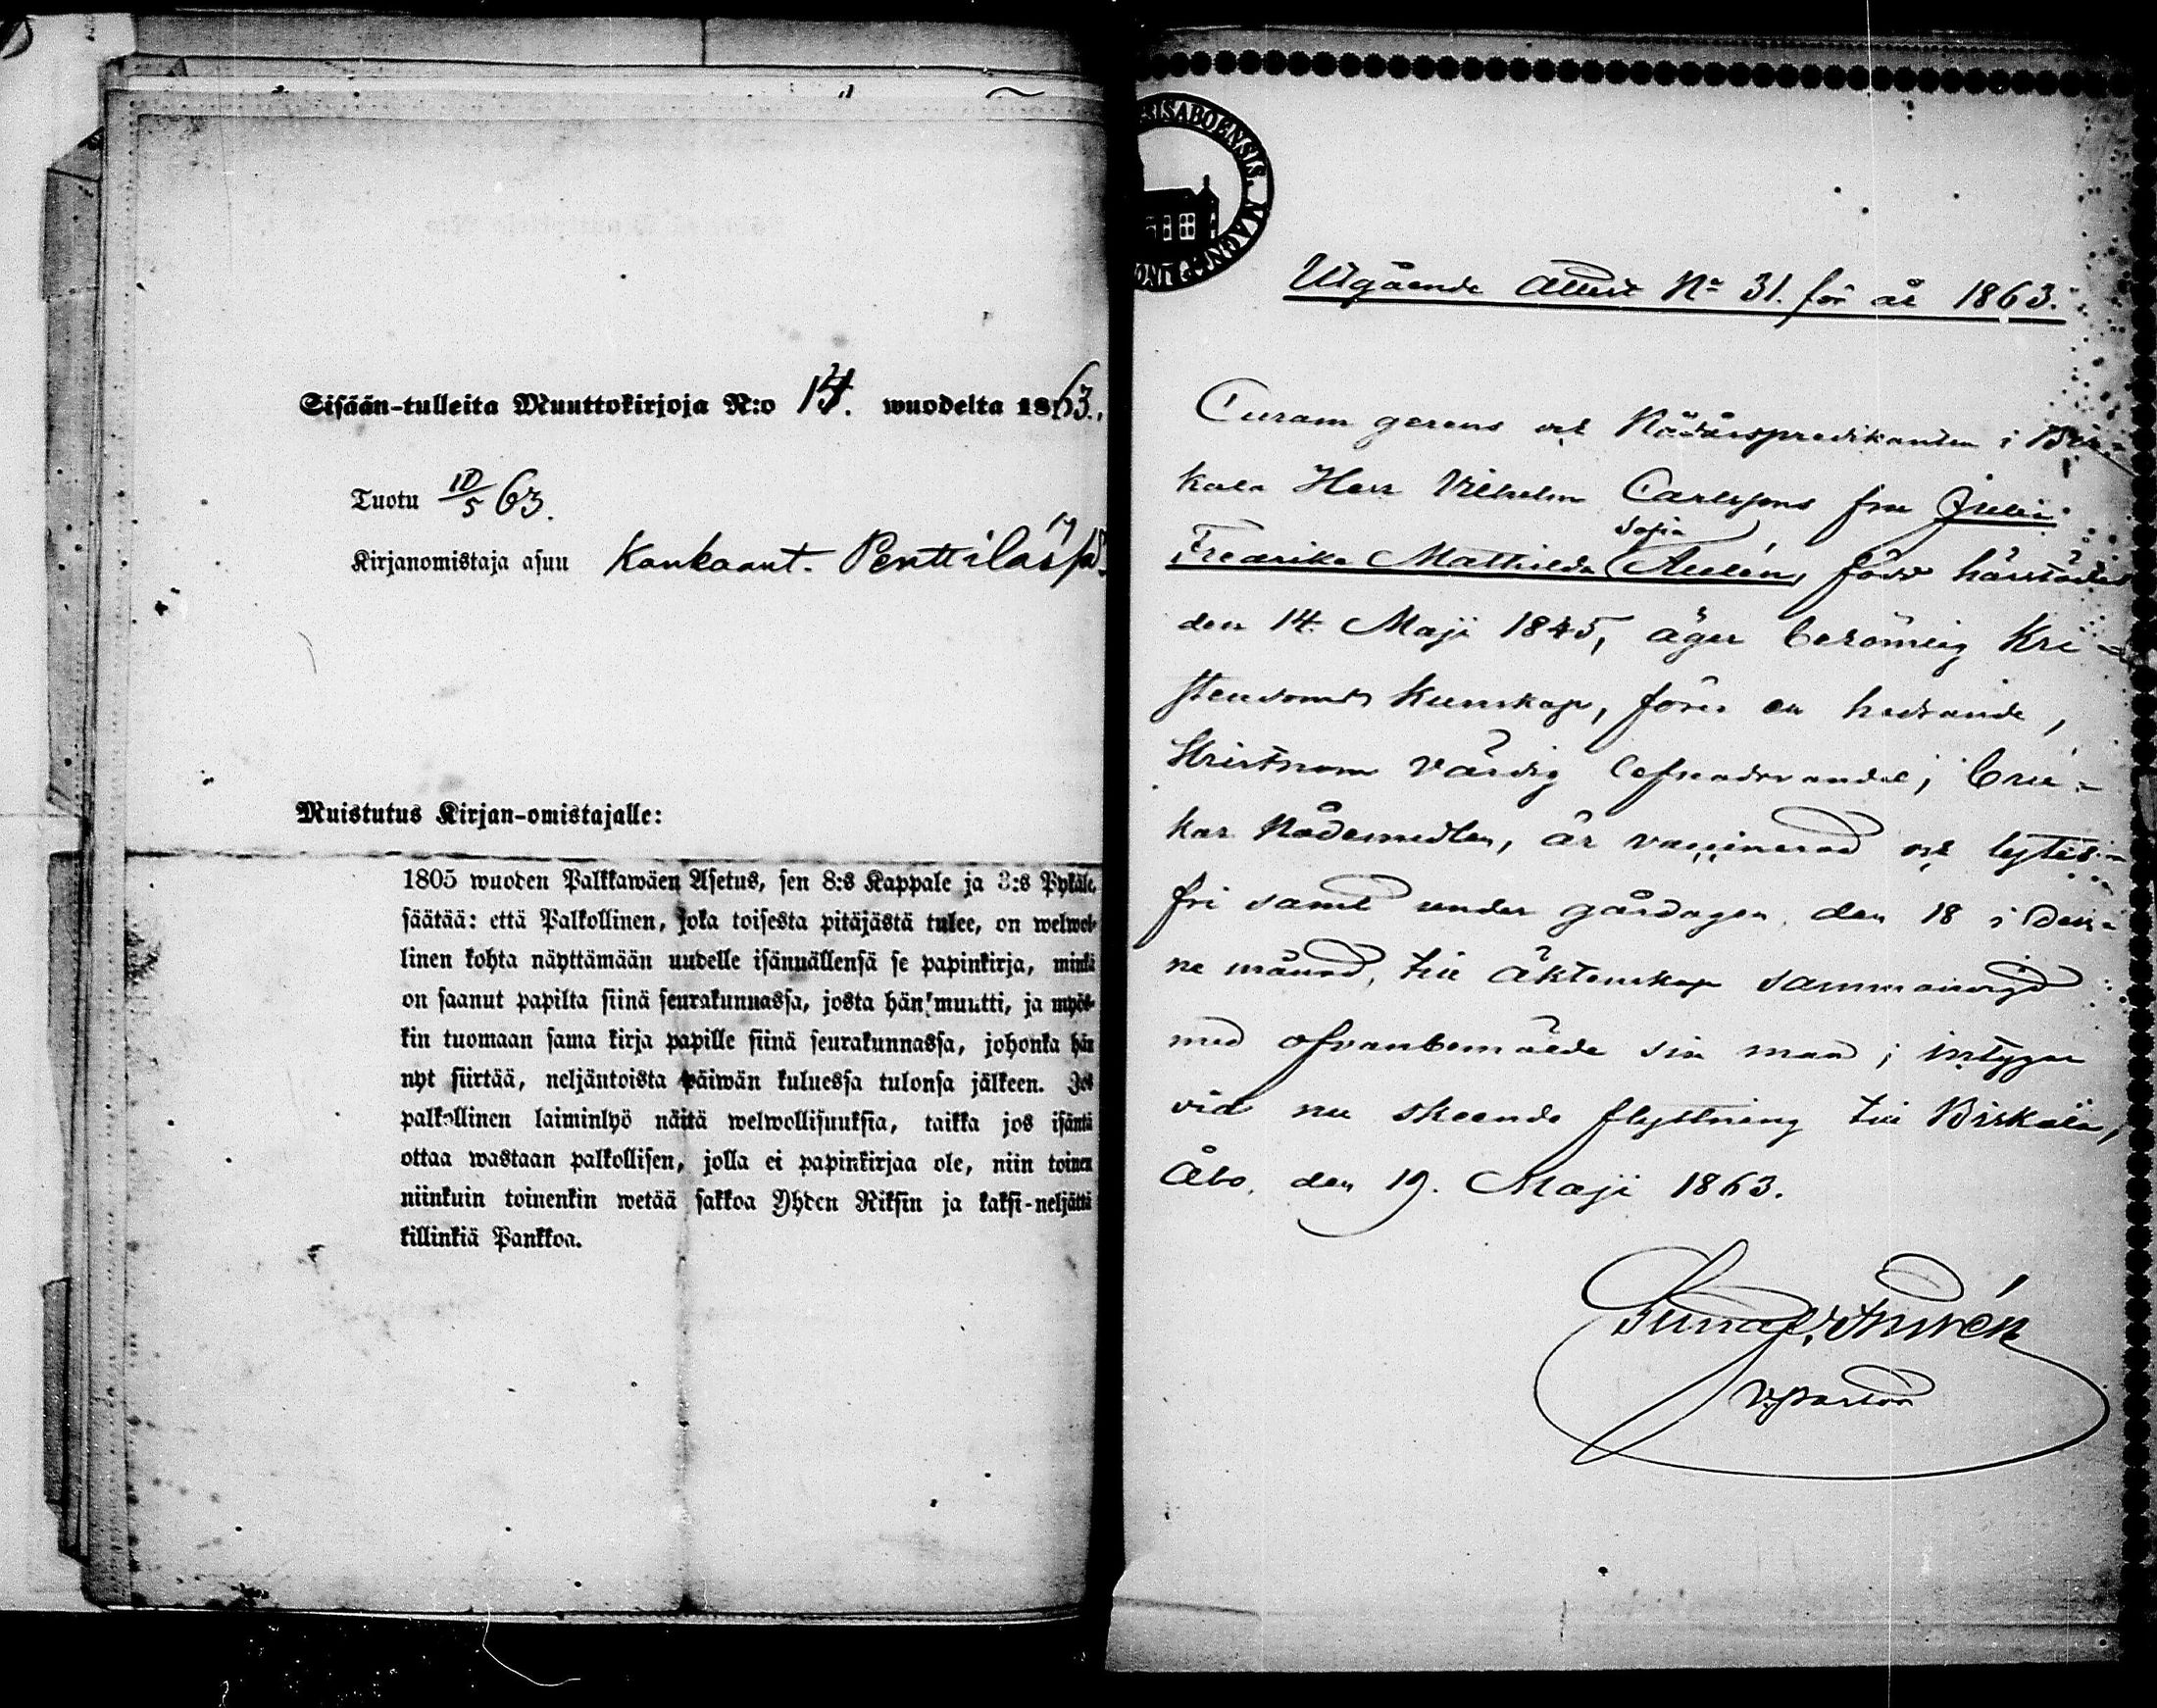 Sisään-tulleita Muuttokirjoja N:o 14. wuodelta 1863.
Tuotu 10/5 63.
Kirjanomistaja asuu Kankaant. Penttilä
Muistutus Kirjan-omistajalle:
1805 wuoden Palkkawäen Asetus, sen 8:s Kappale ja 3:s Pykälä,
säätää: että Palkollinen, joka toisesta pitäjästä tulee, on welwol-
linen kohta näyttämään uudelle isännällensä se papinkirja, minkä
on saanut papilta siinä seurakunnassa, josta hän muutti, ja myös-
kin tuomaan sama kirja papille siinä seurakunnassa, johonka hän
nyt siirtää, neljäntoista päiwän kuluessa tulonsa jälkeen. Jos
palkollinen laiminlyö näitä welwollisuuksia, taikka jos isäntä
ottaa wastaan palkollisen, jolla ei papinkirjaa ole, niin toinen
niinkuin toinenkin wetää sakkoa Yhden Riksin ja kaksi-neljättä
killinkiä Pankkoa.
SISABOENSIS. MAGN
Utgående Attest No 31. för år 1863.
Curam gerens och Nödårspredikanten i Bir-
kala Herr Vilhelm Carlssons fru Julia
Fredrika Mathilda Sofia Aulén, född härstädes
den 14. Maji 1845, äger berömlig Kri-
stendoms kunskap, förer en hedrande,
Kristnom värdig lefnadsvandel; bru-
kar Nådemedlen, är vaccinerad och lytes-
fri samt under gårdagen den 18 i den-
ne månad, till äktenskap sammanvigd
med ofvanbemälde sin man; intygar
vid nu skeende flyttning till Birkala,
Åbo, den 19. Maji 1863.
v. pastor